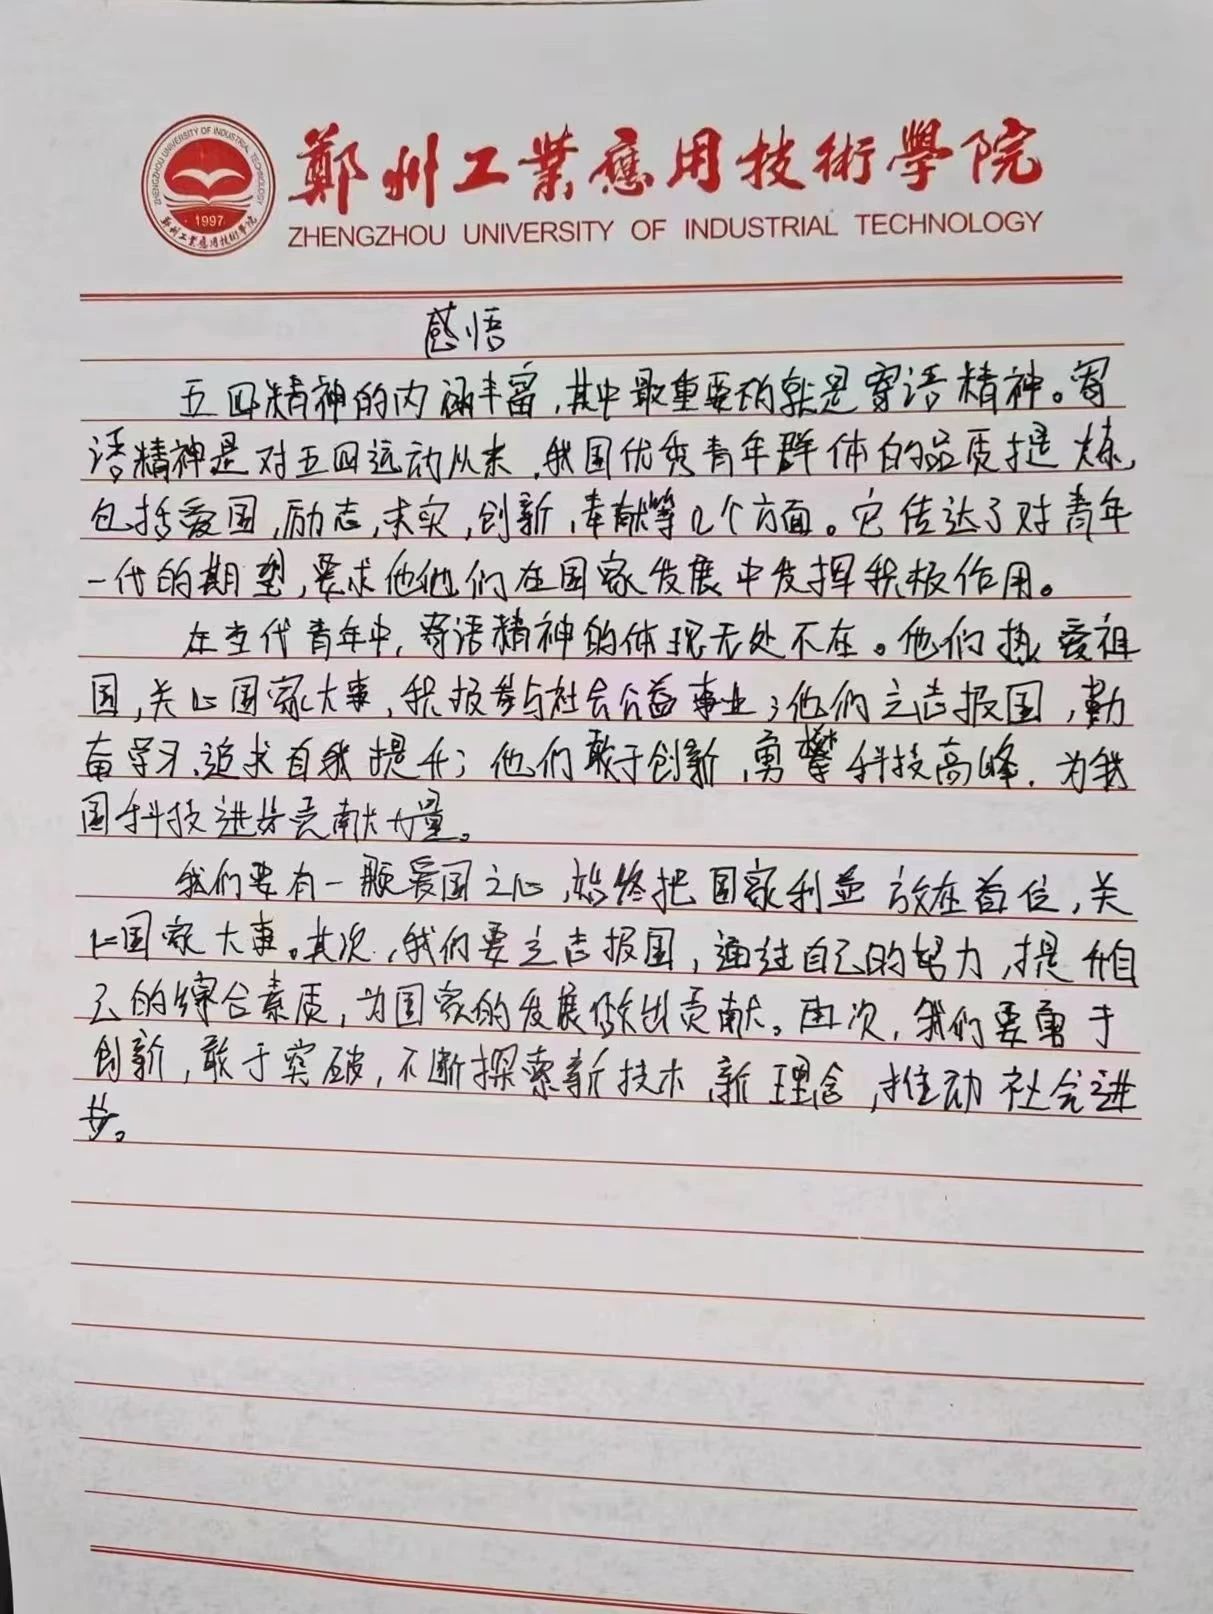 ZHENGZHOU UNIVERSITY OF INDUSTRIAL TECHNOLOGY
·1997·
鄭州工業應用技術學院
鄭州工業應用技術學院
ZHENGZHOU UNIVERSITY OF INDUSTRIAL TECHNOLOGY
感悟
五四精神的内涵丰富，其中最重要的就是寄语精神。寄
语精神是对五四运动以来，我国优秀青年群体的品质提炼，
包括爱国，励志，求实，创新，奉献等几个方面。它传达了对青年
一代的期望，要求他他们在国家发展中发挥积极作用。
在当代青年中，寄语精神的体现无处不在。他们热爱祖
国，关心国家大事，积极参与社会公益事业；他们立志报国，勤
奋学习、追求自我提升；他们敢于创新，勇攀科技高峰，为我
国科技进步贡献力量。
我们要有一颗爱国之心，始终把国家利益放在首位，关
心国家大事。其次，我们要立志报国，通过自己的努力，提升自
己的综合素质，为国家的发展做出贡献。再次，我们要勇于
创新，敢于突破，不断探索新技术，新理念，推动社会进
步。